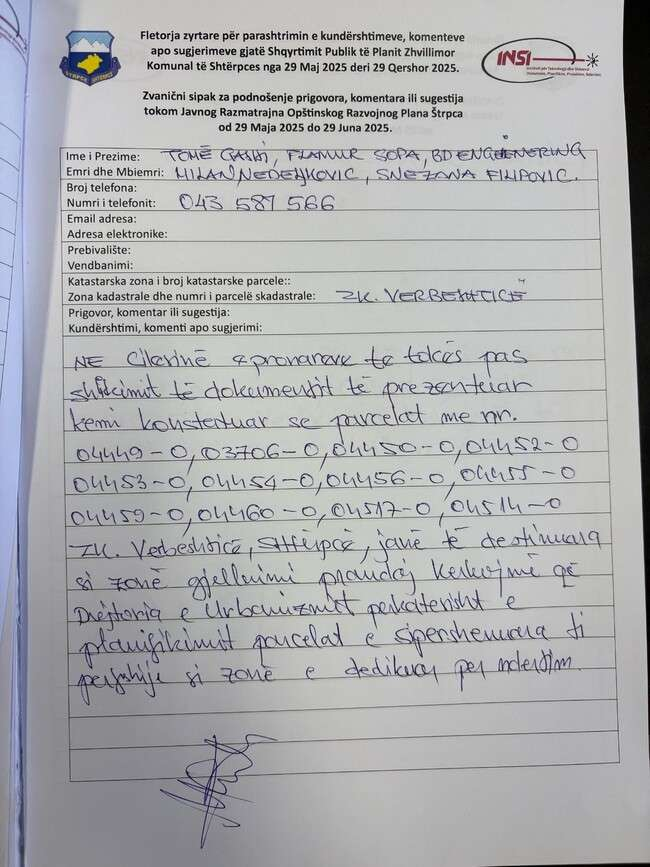 Fletorja zyrtare për parashtrimin e kundërshtimeve, komenteve
apo sugjerimeve gjatë Shqyrtimit Publik të Planit Zhvillimor
Komunal të Shtërpces nga 29 Maj 2025 deri 29 Qershor 2025.
INSI
Zvanični sipak za podnošenje prigovora, komentara ili sugestija
tokom Javnog Razmatrajna Opštinskog Razvojnog Plana Štrpca
od 29 Maja 2025 do 29 Juna 2025.
Ime i Prezime: TOMË GASHI, FLAMUR SOPA, BD ENGINEERING
Emri dhe Mbiemri: MILAN NEDELJKOVIC, SNEZANA FILIPOVIC.
Broj telefona:
Numri i telefonit: 043 587 566
Email adresa:
Adresa elektronike:
Prebivalište:
Vendbanimi:
Katastarska zona i broj katastarske parcele::
Zona kadastrale dhe numri i parcelë skadastrale: ZK. VERBESHTICË
Prigovor, komentar ili sugestija:
Kundërshtimi, komenti apo sugjerimi:
NE Cilërinë e pronareve te tokës pas
shikimit të dokumentit të prezentuar
kemi konstertuar se parcelat me nr.
04449-0, 03706-0, 04450-0, 04452-0
04453-0, 04454-0, 04456-0, 04455-0
04459-0, 04460-0, 04517-0, 04514-0
ZK. Verbeshticë, Shtërpcë, janë të destinuara
si zonë gjelbrimi prandaj kerkojmë që
Drejtoria e Urbanizmit perkatërisht e
planifikimit parcelat e sipershenuara ti
perfshije si zonë e dedikuar per ndertim.